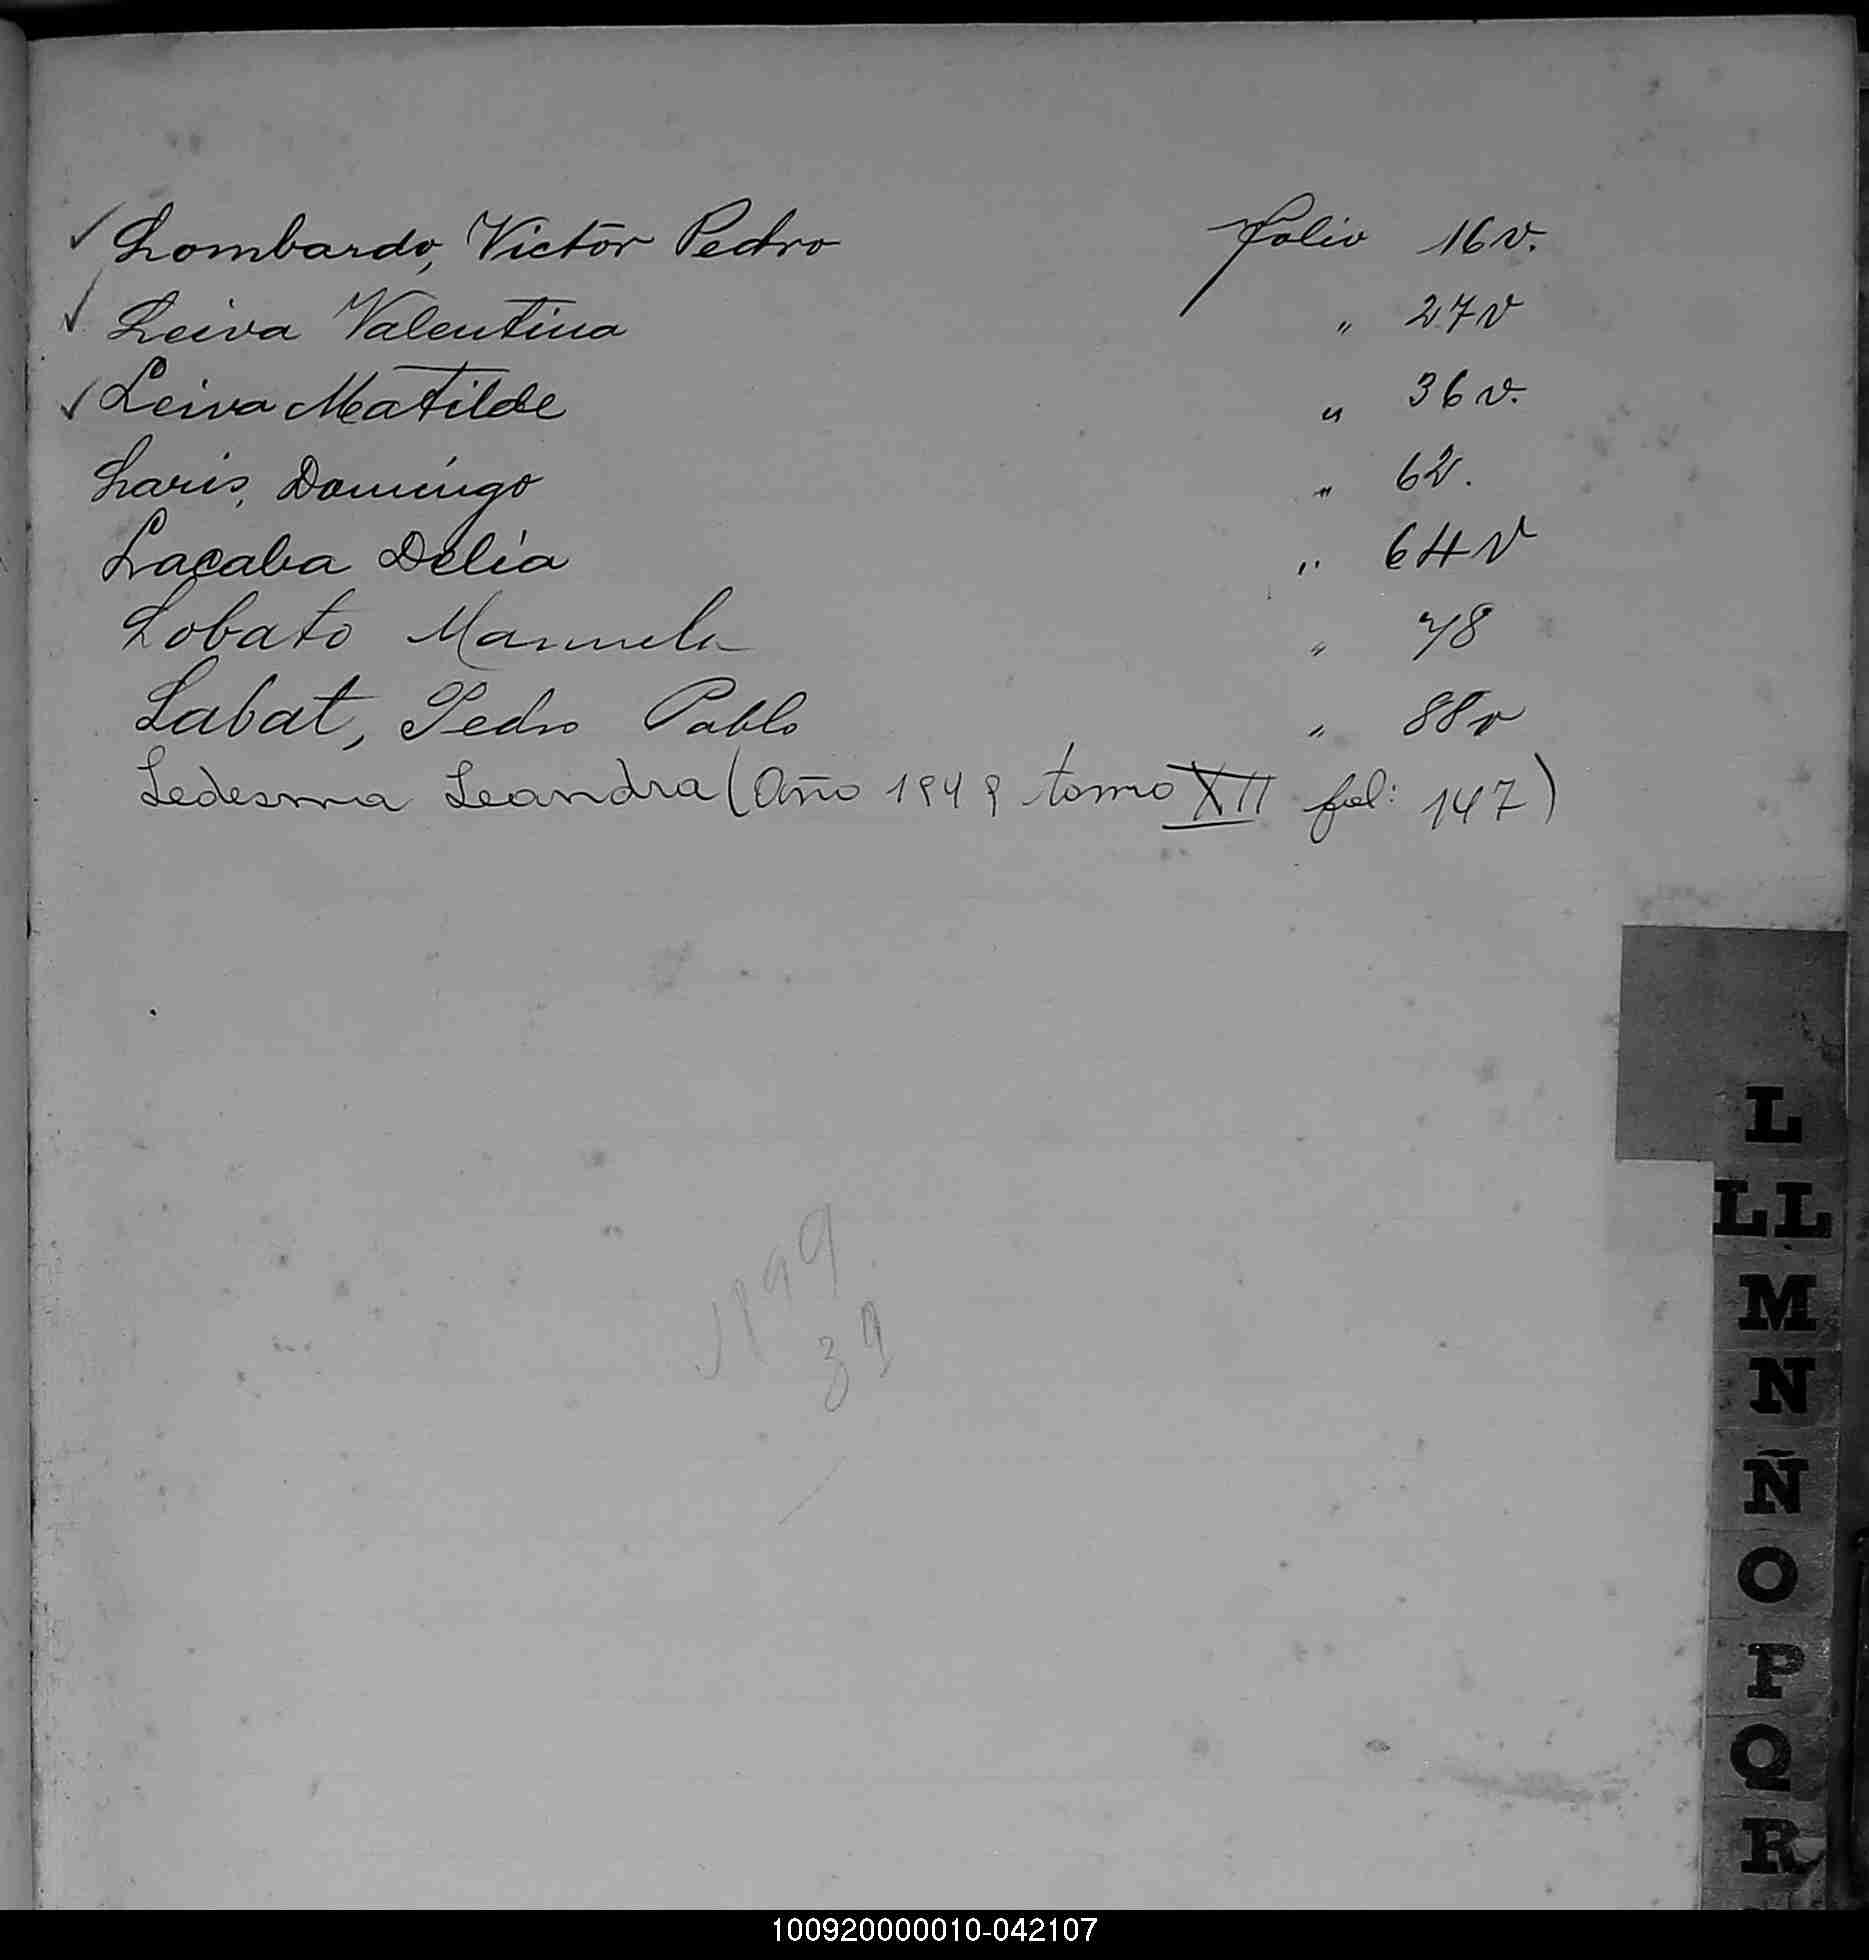 ✓ Lombardo, Victor Pedro folio 16 v.
✓ Leiva Valentina " 27 v
✓ Leiva Matilde " 36 v.
Laris, Domingo " 62.
Lacaba Delia " 64 v
Lobato Manuela " 78
Labat, Pedro Pablo " 88 v
Ledesma Leandra (Año 1949 tomo XII fol: 147)
39
L
LL
M
N
Ñ
O
P
Q
R
100920000010-042107